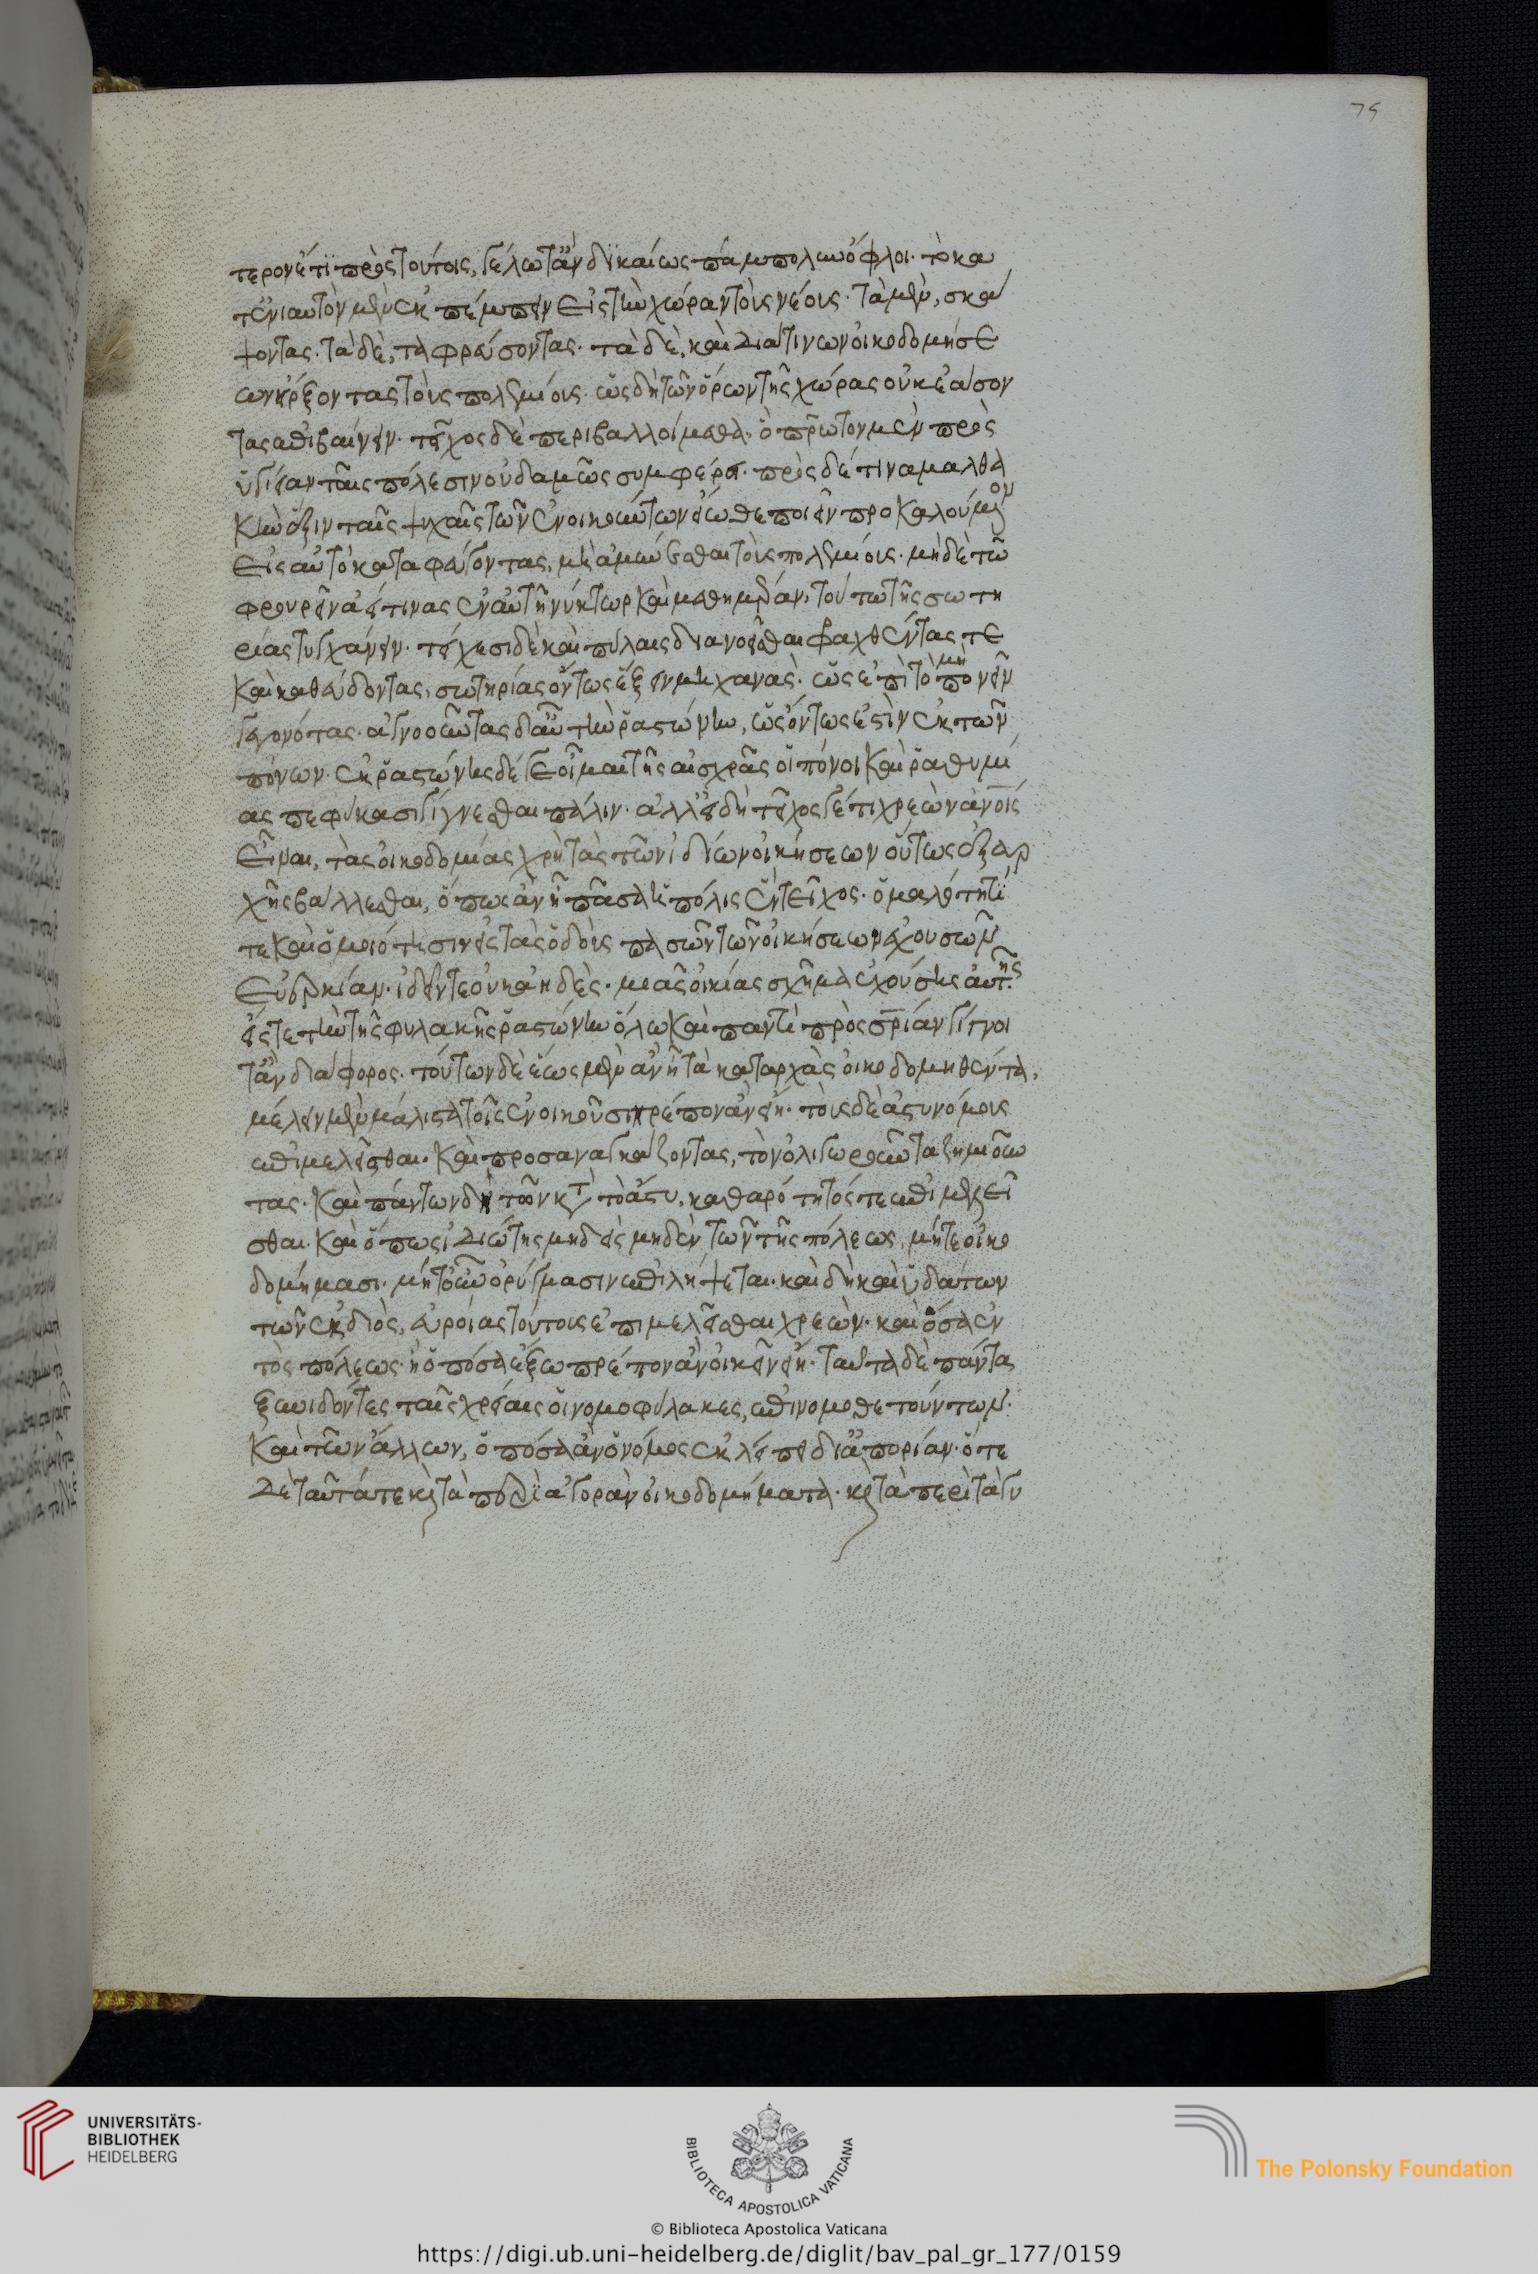 75
τερον ἔτι πρὸς τούτοις, γέλωτ' ἂν δικαίως πάμπολυν ὄφλοι. τὸ κα
τ' ἐνιαυτὸν μὲν ἐκπέμπειν εἰς τὴν χώραν τοὺς νέους. τὰ μὲν, σκά
ψοντας. τὰ δὲ, ταφρεύσοντας. τὰ δὲ, καὶ διά τινων οἰκοδομήσε
ων εἴρξοντας τοὺς πολεμίους. ὡς δὴ τῶν ὅρων τῆς χώρας οὐκ ἐάσον
τας ἐπιβαίνειν. τεῖχος δὲ περιβαλλοίμεθα. ὃ πρῶτον μὲν πρὸς
ὑγίειαν ταῖς πόλεσιν οὐδαμῶς συμφέρει. πρὸς δέ τινα μαλθα
κὴν ἕξιν ταῖς ψυχαῖς τῶν ἐνοικούντων εἴωθε ποιεῖν προκαλούμενον
εἰς αὐτὸ καταφεύγοντας, μὴ ἀμύνεσθαι τοὺς πολεμίους. μηδὲ τῷ
φρουρεῖν ἀεί τινας ἐν αὐτῇ νύκτωρ καὶ μεθημέραν, τούτῳ τῆς σωτη
ρίας τυγχάνειν. τείχεσι δὲ καὶ πύλαις διανοεῖσθαι φραχθέντας τε
καὶ καθεύδοντας, σωτηρίας ὄντως ἕξειν μηχανάς. ὡς ἐπὶ τὸ μὴ πονεῖν
γεγονότας. ἀγνοοῦντας δ' αὖ τὴν ῥᾳστώνην, ὡς ὄντως ἐστὶν ἐκ τῶν
πόνων. ἐκ ῥᾳστώνης δέ γε οἶμαι τῆς αἰσχρᾶς οἱ πόνοι καὶ ῥαθυμί
ας πεφύκασι γίγνεσθαι πάλιν. ἀλλ' εἰ δὴ τεῖχός γέ τι χρεὼν ἀνοις
εἶναι, τὰς οἰκοδομίας χρὴ τὰς τῶν ἰδίων οἰκήσεων οὕτως ἐξαρ
χῆς βάλλεσθαι, ὅπως ἂν ᾖ πᾶσα ἡ πόλις ἓν τεῖχος. ὁμαλότητί
τε καὶ ὁμοιότησιν εἰς τὰς ὁδοὺς πασῶν τῶν οἰκήσεων ἐχουσῶν
εὐέρκειαν. ἰδεῖν τε οὐκ ἀηδὲς. μιᾶς οἰκίας σχῆμα ἐχούσης αὐτῆς.
εἴς τε τὴν τῆς φυλακῆς ῥᾳστώνην ὅλῳ καὶ παντὶ πρὸς σρίαν γίγνοι
τ' ἂν διάφορος. τούτων δὲ ἕως μὲν ἂν ᾖ τὰ καταρχὰς οἰκοδομηθέντα,
μέλειν μὲν μάλιστα τοῖς ἐνοικοῦσι πρέπον ἂν εἴη. τοὺς δὲ ἀστυνόμους
ἐπιμελεῖσθαι. καὶ προσαναγκάζοντας, τὸν ὀλιγωροῦντα ζημιοῦν
τας. καὶ πάντων δὴ τῶν κτ τὸ ἄστυ, καθαρότητός τε ἐπιμελεῖ
σθαι. καὶ ὅπως ἰδιώτης μηδεὶς μηδὲν τῶν τῆς πόλεως, μήτε οἰκο
δομήμασι. μήτ' οὖν ὀρύγμασιν ἐπιλήψεται. καὶ δὴ καὶ ὑδάτων
τῶν ἐκ διὸς, εὐροίας τούτους ἐπιμελεῖσθαι χρεών. καὶ ὅσα ἐν
τὸς πόλεως. ἢ ὁπόσα ἔξω πρέπον ἂν οἰκεῖν εἴη. ταῦτα δὲ πάντα
ξυνιδόντες ταῖς χρείαις οἱ νομοφύλακες, ἐπινομοθετούντων.
καὶ τῶν ἄλλων, ὁπόσα ἂν ὁ νόμος ἐκλείπει δι' ἀπορίαν. ὅτε
δὲ ταῦτά τε κ τὰ περὶ ἀγορὰν οἰκοδομήματα. κ τὰ περὶ τὰ γυ
UNIVERSITÄTS-
BIBLIOTHEK
HEIDELBERG
BIBLIOTECA APOSTOLICA VATICANA
The Polonsky Foundation
© Biblioteca Apostolica Vaticana
https://digi.ub.uni-heidelberg.de/diglit/bav_pal_gr_177/0159